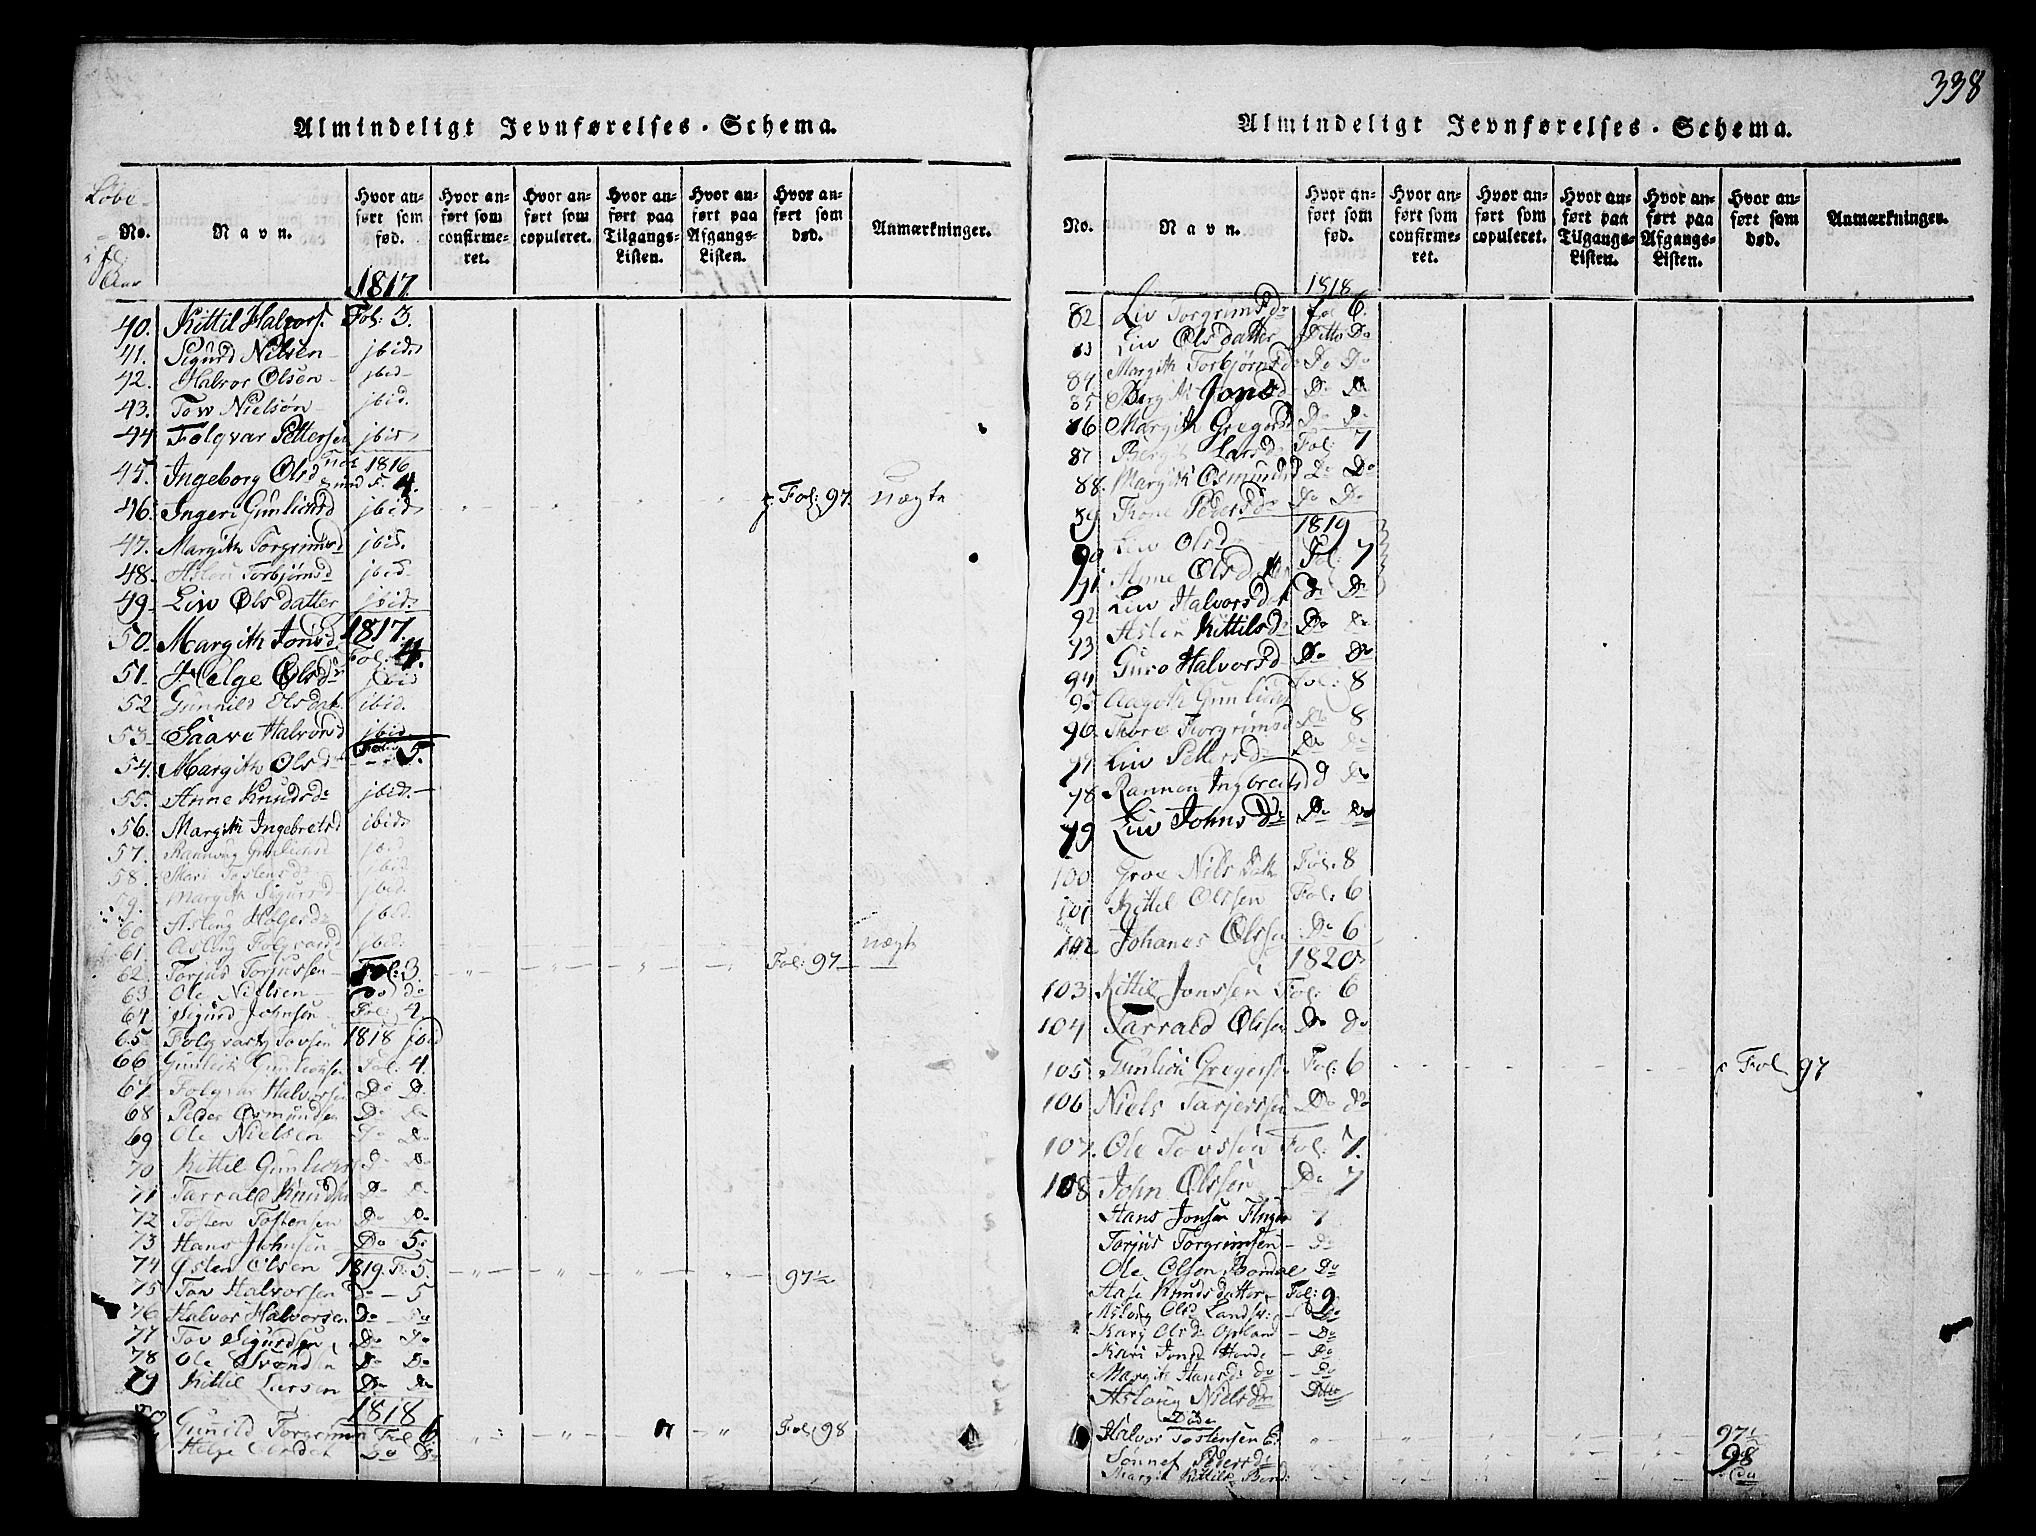 338
Almindeligt Jevnførelses-Schema.
Løbe No. i fl: Aar
Navn.
Hvor anført som fød.
Hvor anført som confirmeret.
Hvor anført som copuleret.
Hvor anført paa Tilgangs-Listen.
Hvor anført paa Afgangs-Listen.
Hvor anført som død.
Anmærkninger.
1817
40. Kittil Halvors. Fol: 3.
41. Sigurd Nilsen jbid
42. Halvor Olsen jbid
43. Tov Nielsøn jbid.
44. Folqvar Pettersen jbid
45. Ingeborg Olsd 1816 4
46. Ingeri Gunliksd jbid Fol: 97 nægte
47. Margith Torgrimsd jbid.
48. Aslou Torbjørnsd jbid
49. Liv Olsdatter jbid
50. Margith Jonsd 1817. Fol: 4.
51. Helge Olsd jbid
52 Gunnild Olsdat. jbid.
53. Saave Halvorsd jbid.
54. Margith Olsd Fol: 5.
55. Anne Knudsd jbid.
56. Margith Ingebretsd jbid
57. Rannoug Gunlicksd jbid
58. Mari Tostensd jbid
59. Margith Sigursd jbid.
60 Asloug Holgersd jbid.
61. Asloug Folqvarsd jbid.
62. Torjus Torjussen Fol: 3 Fol: 97 nægte
63. Ole Nielsen do do
64. Sigurd Johnsen Fol: 4
65 Folqvar Tovsen 1818 jbid
66 Gunlich Gunlichsen Fol: 4.
67. Folqvar Halvorsen Do D.
68 Peder Osmundsen Do Do
69 Ole Nielsen Do Do
70 Kittil Gunlichs Do Do
71 Tarrald Knudsen Do Do
72 Tosten Tostensen Do Do
73 Hans Johnsen Do 5.
74 Østen Olsen 1819. F: 5. 97
75 Tov Halvorsen Do 5
76 Halvor Halvorsen Do Do
77 Tov Sigurdsen Do Do
78 Ole Svendsen Do Do
79 Kittil Larsen Do Do
1818
80 Gunild Torgrimsen Fol 6 Fol 98
Helge Olsdat Do Do
Almindeligt Jevnførelses-Schema.
No.
Navn.
Hvor anført som fød.
Hvor anført som confirmeret.
Hvor anført som copuleret.
Hvor anført paa Tilgangs-Listen.
Hvor anført paa Afgangs-Listen.
Hvor anført som død.
Anmærkninger.
1818
82. Liv Torgrimsdr fol 6.
83 Liv Olsdatter Ditto Do
84. Margith Torbjørnsd Do Do
85 Bergit Jonsd Do Do
86 Margith Gregersd Do Do
87 Bergit Larsd Fol: 7
88. Margith Osmundsd Do Do
89 Thone Pedersdr Do Do
1819
90 Liv Olsdr Fol: 7
91 Anne Olsdatter Do Do
92 Liv Halvorsdat Do Do
93 Aslou Kittilsd Do Do
94 Guro Halvorsd Do Do
95 Aagoth Gunlichsd Fol: 8
96. Thore Torgrimsd Do 8
97 Liv Pettersd Do Do
98 Rannou Ingbretsd Do
99 Liv Johnsdr Do Do
100 Groe Nils Datt Fol: 8
101 Kittil Olssen Fol: 6
102 Johanes Olssen Do 6
1820
103. Kittil Jonssen Fol: 6
104 Tarrald Olssen Do Do
105. Gunlich Gregersen Fol: 6 Fol 97
106 Niels Tarjerssen Do do
107. Ole Tovssen Fol: 7.
108 John Olssen Do 7
Hans Jonsen 7
Torjus Torgrimsen Do
Ole Olsen Do
Aase Knudsdatter Fol: 9
Asloug Olsd Do
Karj Olsd Do
Kari Jonsd Do
Margit Hansd Do
Asloug Nielsdr Ditto
Døde
Halvor Tostensen 97
Sønnef Pedersd 98
Margit Kittilsd do